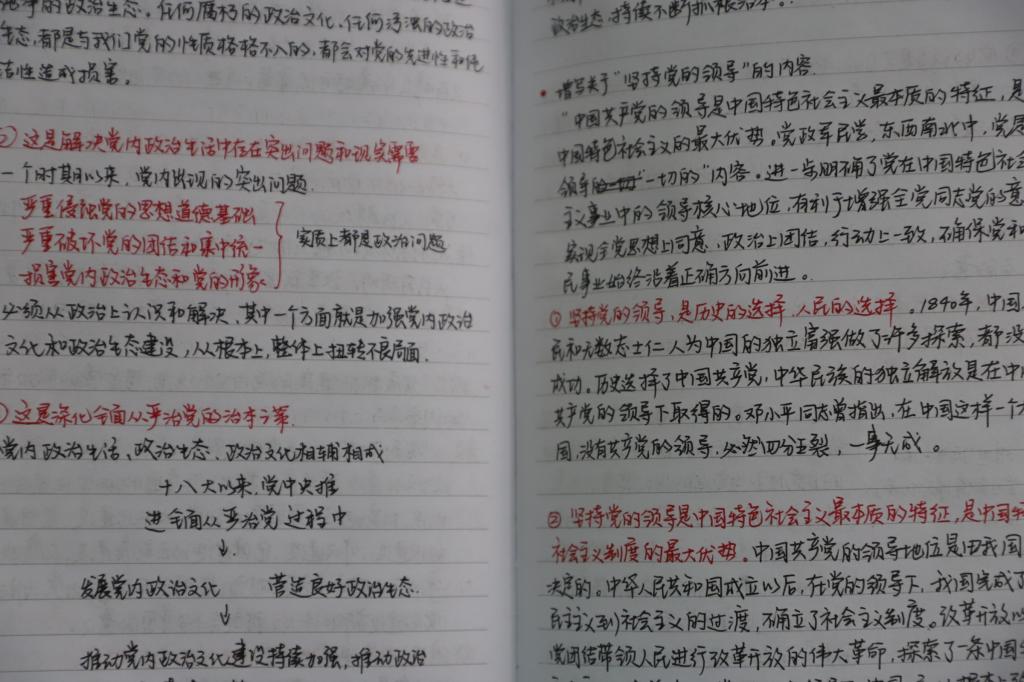 的政治生态,任何腐朽的政治文化,任何污浊的政治
生态,都是与我们党的性质格格不入的,都会对党的先进性和纯
洁性造成损害。
这是解决党内政治生活中存在突出问题和现实需要
一个时期以来,党内出现的突出问题.
严重侵蚀党的思想道德基础
严重破坏党的团结和集中统一
损害党内政治生态和党的形象
实质上都是政治问题
必须从政治上认识和解决.其中一个方面就是加强党内政治
文化和政治生态建设,从根本上,整体上扭转不良局面.
)这是深化全面从严治党的治本之策.
党内政治生活、政治生态、政治文化相辅相成
十八大以来,党中央推
进全面从严治党过程中
↓
发展党内政治文化 营造良好政治生态.
↓
推动党内政治文化建设持续加强,推动政治
政治生态,持续不断抓根治本。
• 增写关于"坚持党的领导"的内容.
"中国共产党的领导是中国特色社会主义最本质的特征,是
中国特色社会主义的最大优势。党政军民学,东西南北中,党是
领导一切的"内容。进一步明确了党在中国特色社会
主义事业中的领导核心地位,有利于增强全党同志党的意
实现全党思想上同意,政治上团结,行动上一致,确保党和
民事业始终沿着正确方向前进。
① 坚持党的领导,是历史的选择、人民的选择。1840年,中国
民和无数志士仁人为中国的独立富强做了许多探索,都没
成功。历史选择了中国共产党,中华民族的独立解放是在中
共产党的领导下取得的。邓小平同志曾指出,在中国这样一个大
国,没有共产党的领导,必然四分五裂,一事无成。
② 坚持党的领导是中国特色社会主义最本质的特征,是中国特
社会主义制度的最大优势。中国共产党的领导地位是由我国
决定的。中华人民共和国成立以后,在党的领导下,我国完成了
民主义到社会主义的过渡,确立了社会主义制度。改革开放以
党团结带领人民进行改革开放的伟大革命,探索了一条中国